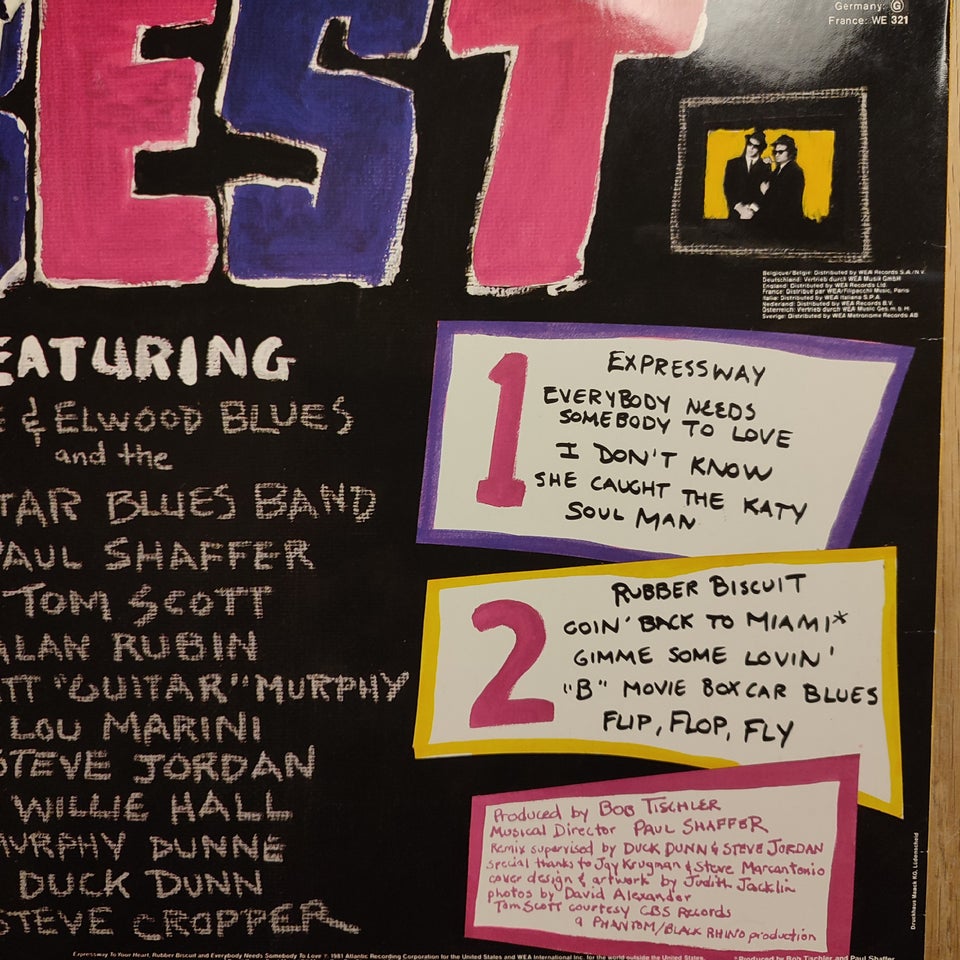 EST
Germany: G
France: WE 321
Belgique/België: Distributed by WEA Records S.A./N.V.
Deutschland: Vertrieb durch WEA Musik GmbH
England: Distributed by WEA Records Ltd.
France: Distribué par WEA/Filipacchi Music, Paris
Italia: Distributed by WEA Italiana S.P.A.
Nederland: Distributed by WEA Records B.V.
Österreich: Vertrieb durch WEA Music Ges. m. b. H.
Sverige: Distributed by WEA Metronome Records AB
EATURING
E & ELWOOD BLUES
and the
TAR BLUES BAND
PAUL SHAFFER
TOM SCOTT
ALAN RUBIN
TT "GUITAR" MURPHY
LOU MARINI
STEVE JORDAN
WILLIE HALL
MURPHY DUNNE
DUCK DUNN
STEVE CROPPER
1
EXPRESSWAY
EVERYBODY NEEDS
SOMEBODY TO LOVE
I DON'T KNOW
SHE CAUGHT THE KATY
SOUL MAN
2
RUBBER BISCUIT
GOIN' BACK TO MIAMI*
GIMME SOME LOVIN'
"B" MOVIE BOXCAR BLUES
FLIP, FLOP, FLY
Produced by BOB TISCHLER
Musical Director PAUL SHAFFER
Remix supervised by DUCK DUNN & STEVE JORDAN
special thanks to Jay Krugman & Steve Marcantonio
cover design & artwork by Judith Jacklin
photos by David Alexander
Tom Scott courtesy CBS Records
a PHANTOM/BLACK RHINO production
Druckhaus Maack KG, Lüdenscheid
Expressway To Your Heart, Rubber Biscuit and Everybody Needs Somebody To Love ℗ 1981 Atlantic Recording Corporation for the United States and WEA International Inc. for the world outside the United States.
*Produced by Bob Tischler and Paul Shaffer